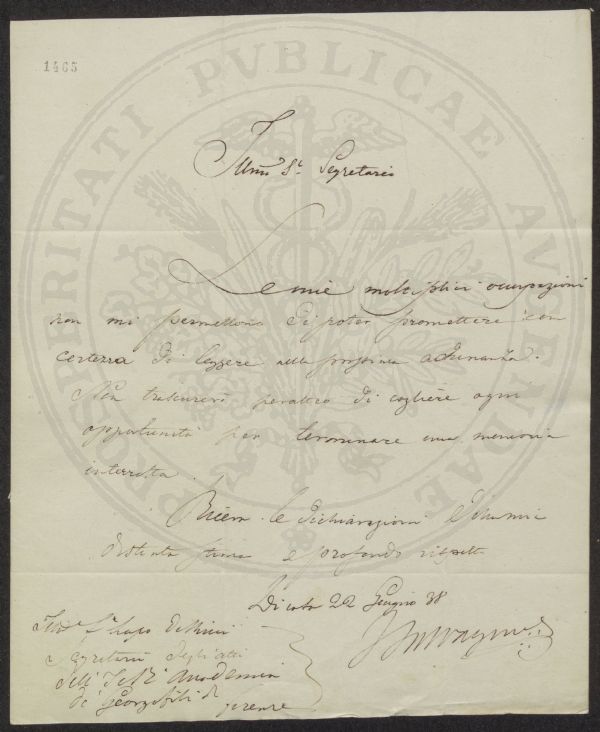 1465
PROSPERITATI PVBLICAE AVGENDAE
Illmo Sr. Segretario
Le mie molteplici occupazioni
non mi permettono di poter promettere con
certezza di leggere nella prossima adunanza.
Non trascurerò peraltro di cogliere ogni
opportunità per terminare una memoria
interrotta.
Riceva le dichiarazioni della mia
distinta stima e profondo rispetto
Di casa 22 Giugno 38
Segretario degli atti
dell' I e R Accademia
de' Georgofili di
Firenze